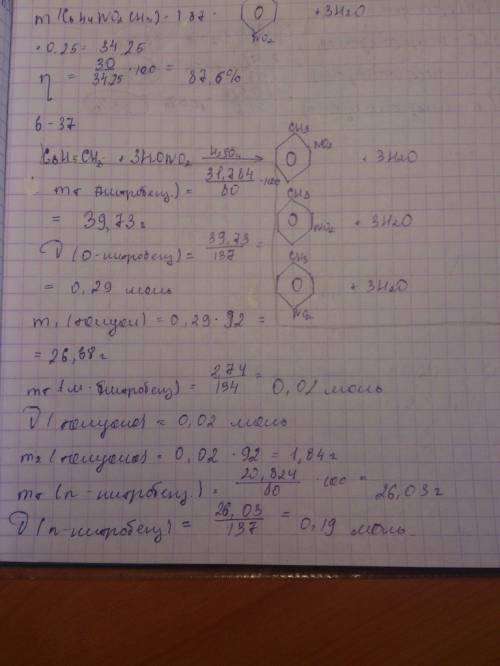 m (C6H4NO2CH3) = 137 ·
NO2
+ 3H2O
· 0,25 = 34,25
η = 30 / 34,25 · 100 = 87,6%
6-37
C6H5-CH3 + 3HONO2 H2SO4 →
CH3
NO2
+ 3H2O
31,784 / 80 · 100
= 39,73 г
CH3
NO2
+ 3H2O
ν (о-нитробенз) = 39,73 / 137 =
= 0,29 моль
CH3
NO2
+ 3H2O
m1 (толуол) = 0,29 · 92 =
= 26,68 г
2,74 / 134 = 0,02 моль
ν (толуола) = 0,02 моль
m2 (толуола) = 0,02 · 92 = 1,84 г
mт (п-нитробенз.) = 20,824 / 80 · 100 = 26,03 г
ν (п-нитробенз) = 26,03 / 137 = 0,19 моль